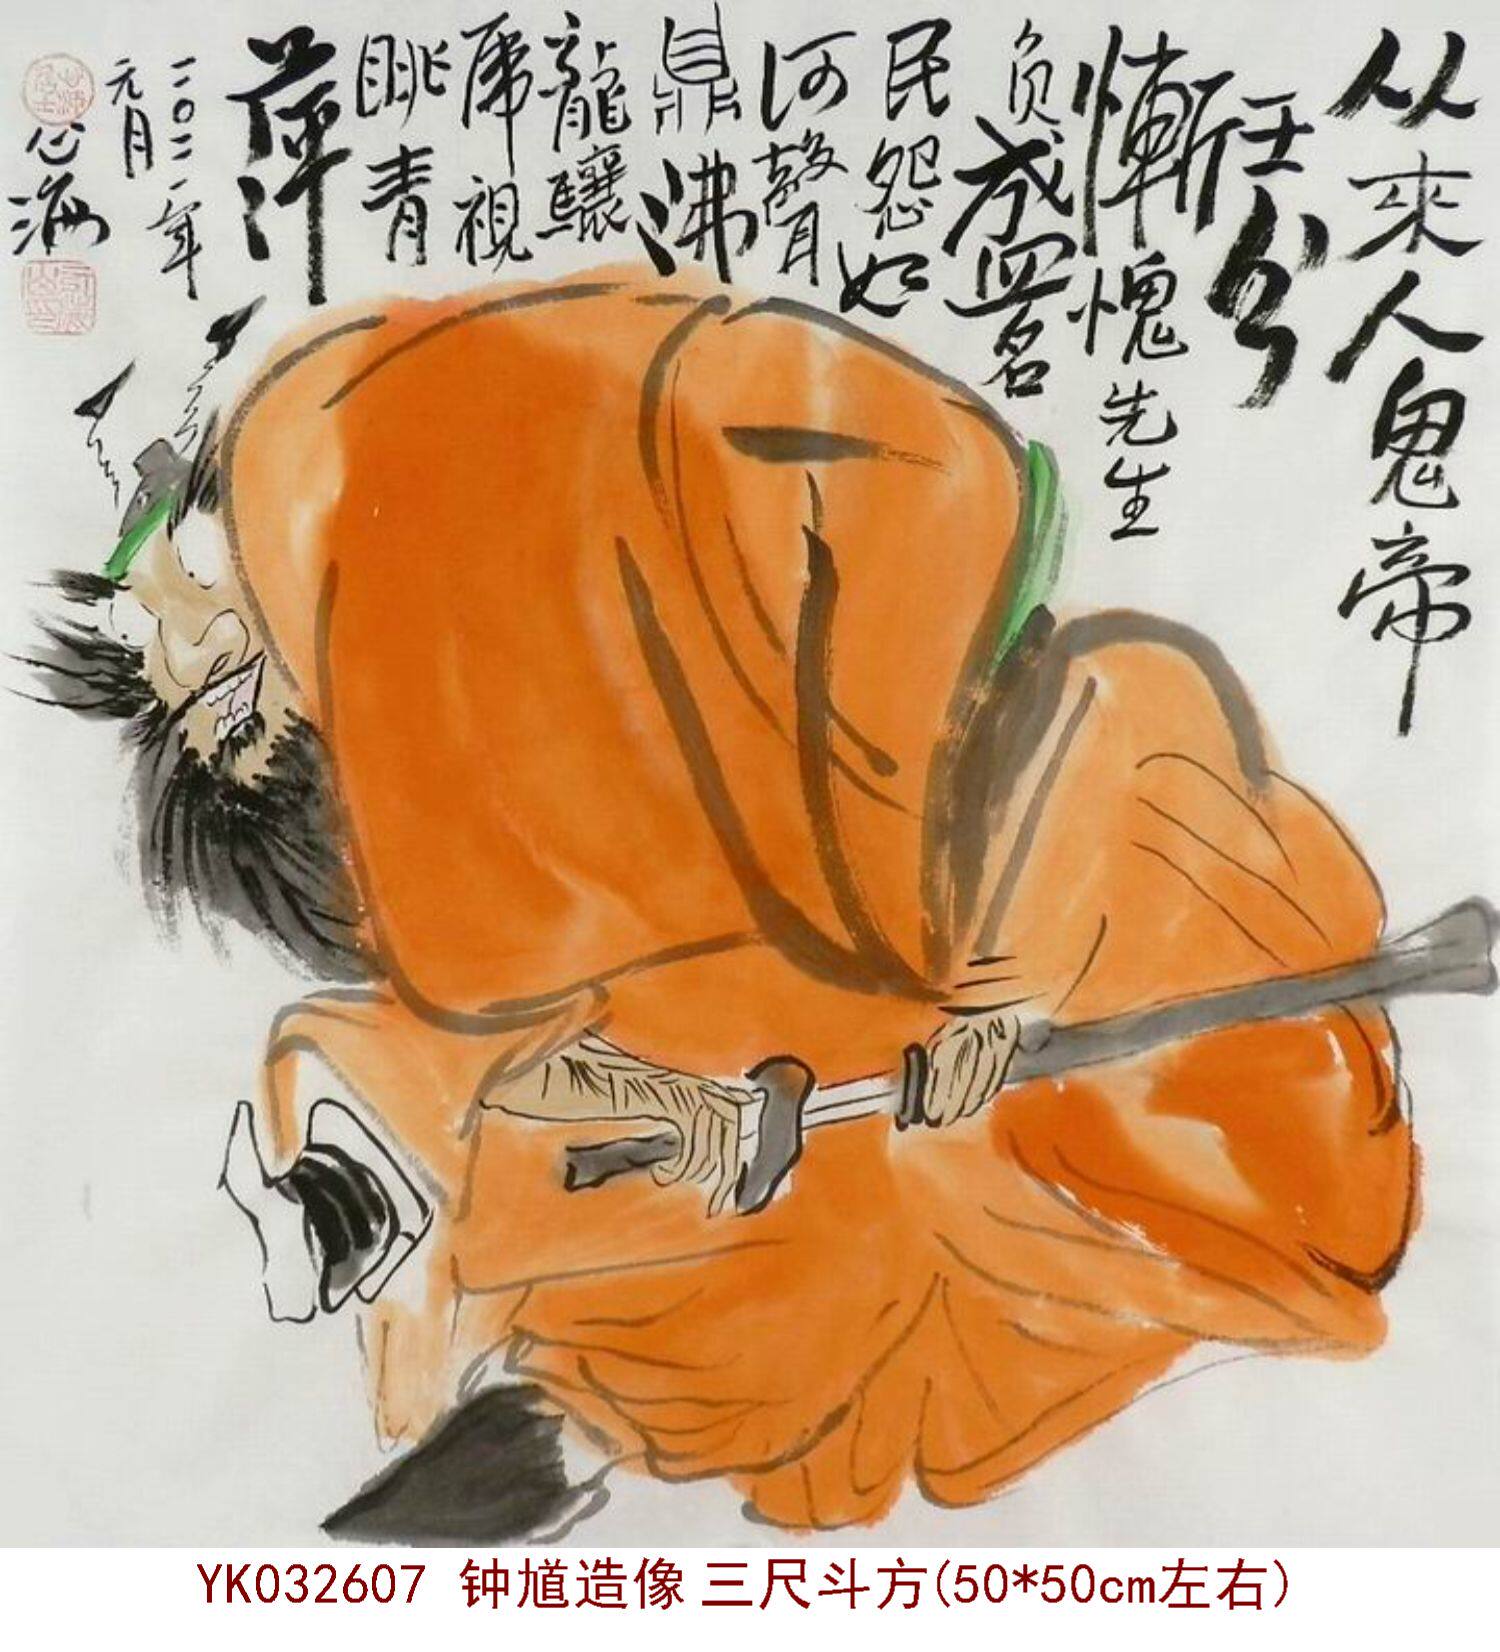 从來人鬼帝
王分
慚愧先生
负盛名
民怨如
河聲
鼎沸
龍驤
虎視
眺青
萍
二〇一二年
元月
心海
YK032607 钟馗造像 三尺斗方(50*50cm左右)